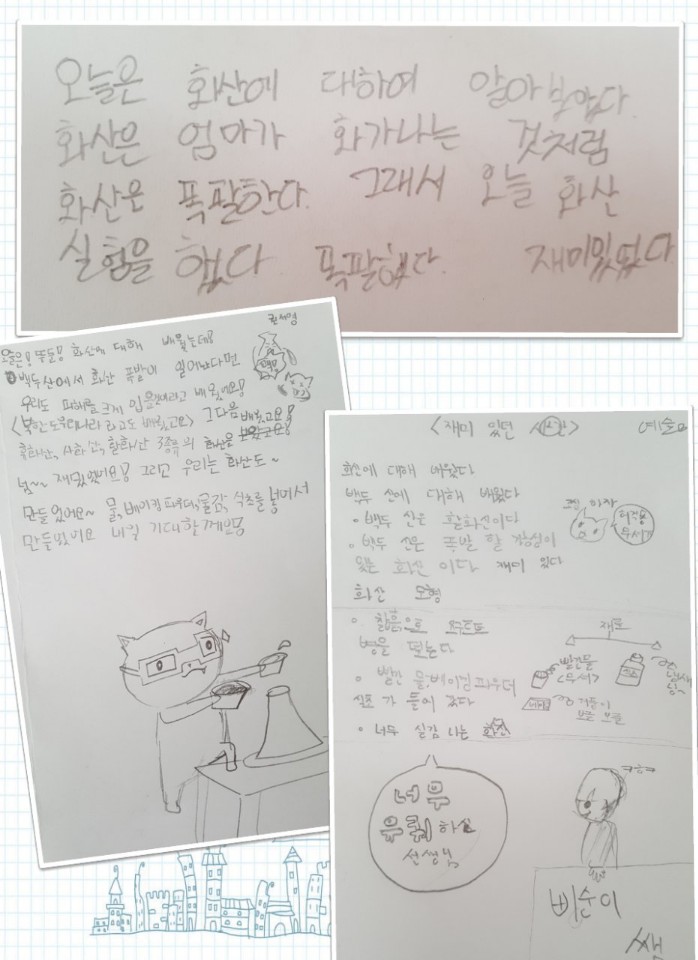 오늘은 화산에 대하여 알아보았다
화산은 엄마가 화가나는 것처럼
화산은 폭팔한다. 그래서 오늘 화산
실험을 했다 폭팔했다. 재미있었다
오늘은! 뚜둥! 화산에 대해 배웠는데!
백두산에서 화산 폭발이 일어난다면
우리도 피해를 크게 입을것이라고 배웠어요!
그다음 배웠고요!
사화산, 활화산 3종류의 화산을
넘~~ 재밌었어요! 그리고 우리는 화산도~
만들었어요~ 물, 베이킹파우더, 물감, 식초를 넣어서
만들었어요 내일 기대할게요
<재미 있던 화산>
화산에 대해 배웠다
백두 산에 대해 배웠다
• 백두 산은 활화산이다
• 백두 산은 폭발 할 가능성이
있는 화산 이다 재미 있다
화산 모형
• 찰흙으로
병을
재료
• 빨간 물, 베이킹 파우더
식초 가 들어 갔다
빨간물
식초
• 너무 실감 나는 화산
너무
유쾌 하신
선생님
ㅋㅎㅋ
삐순이
쌤